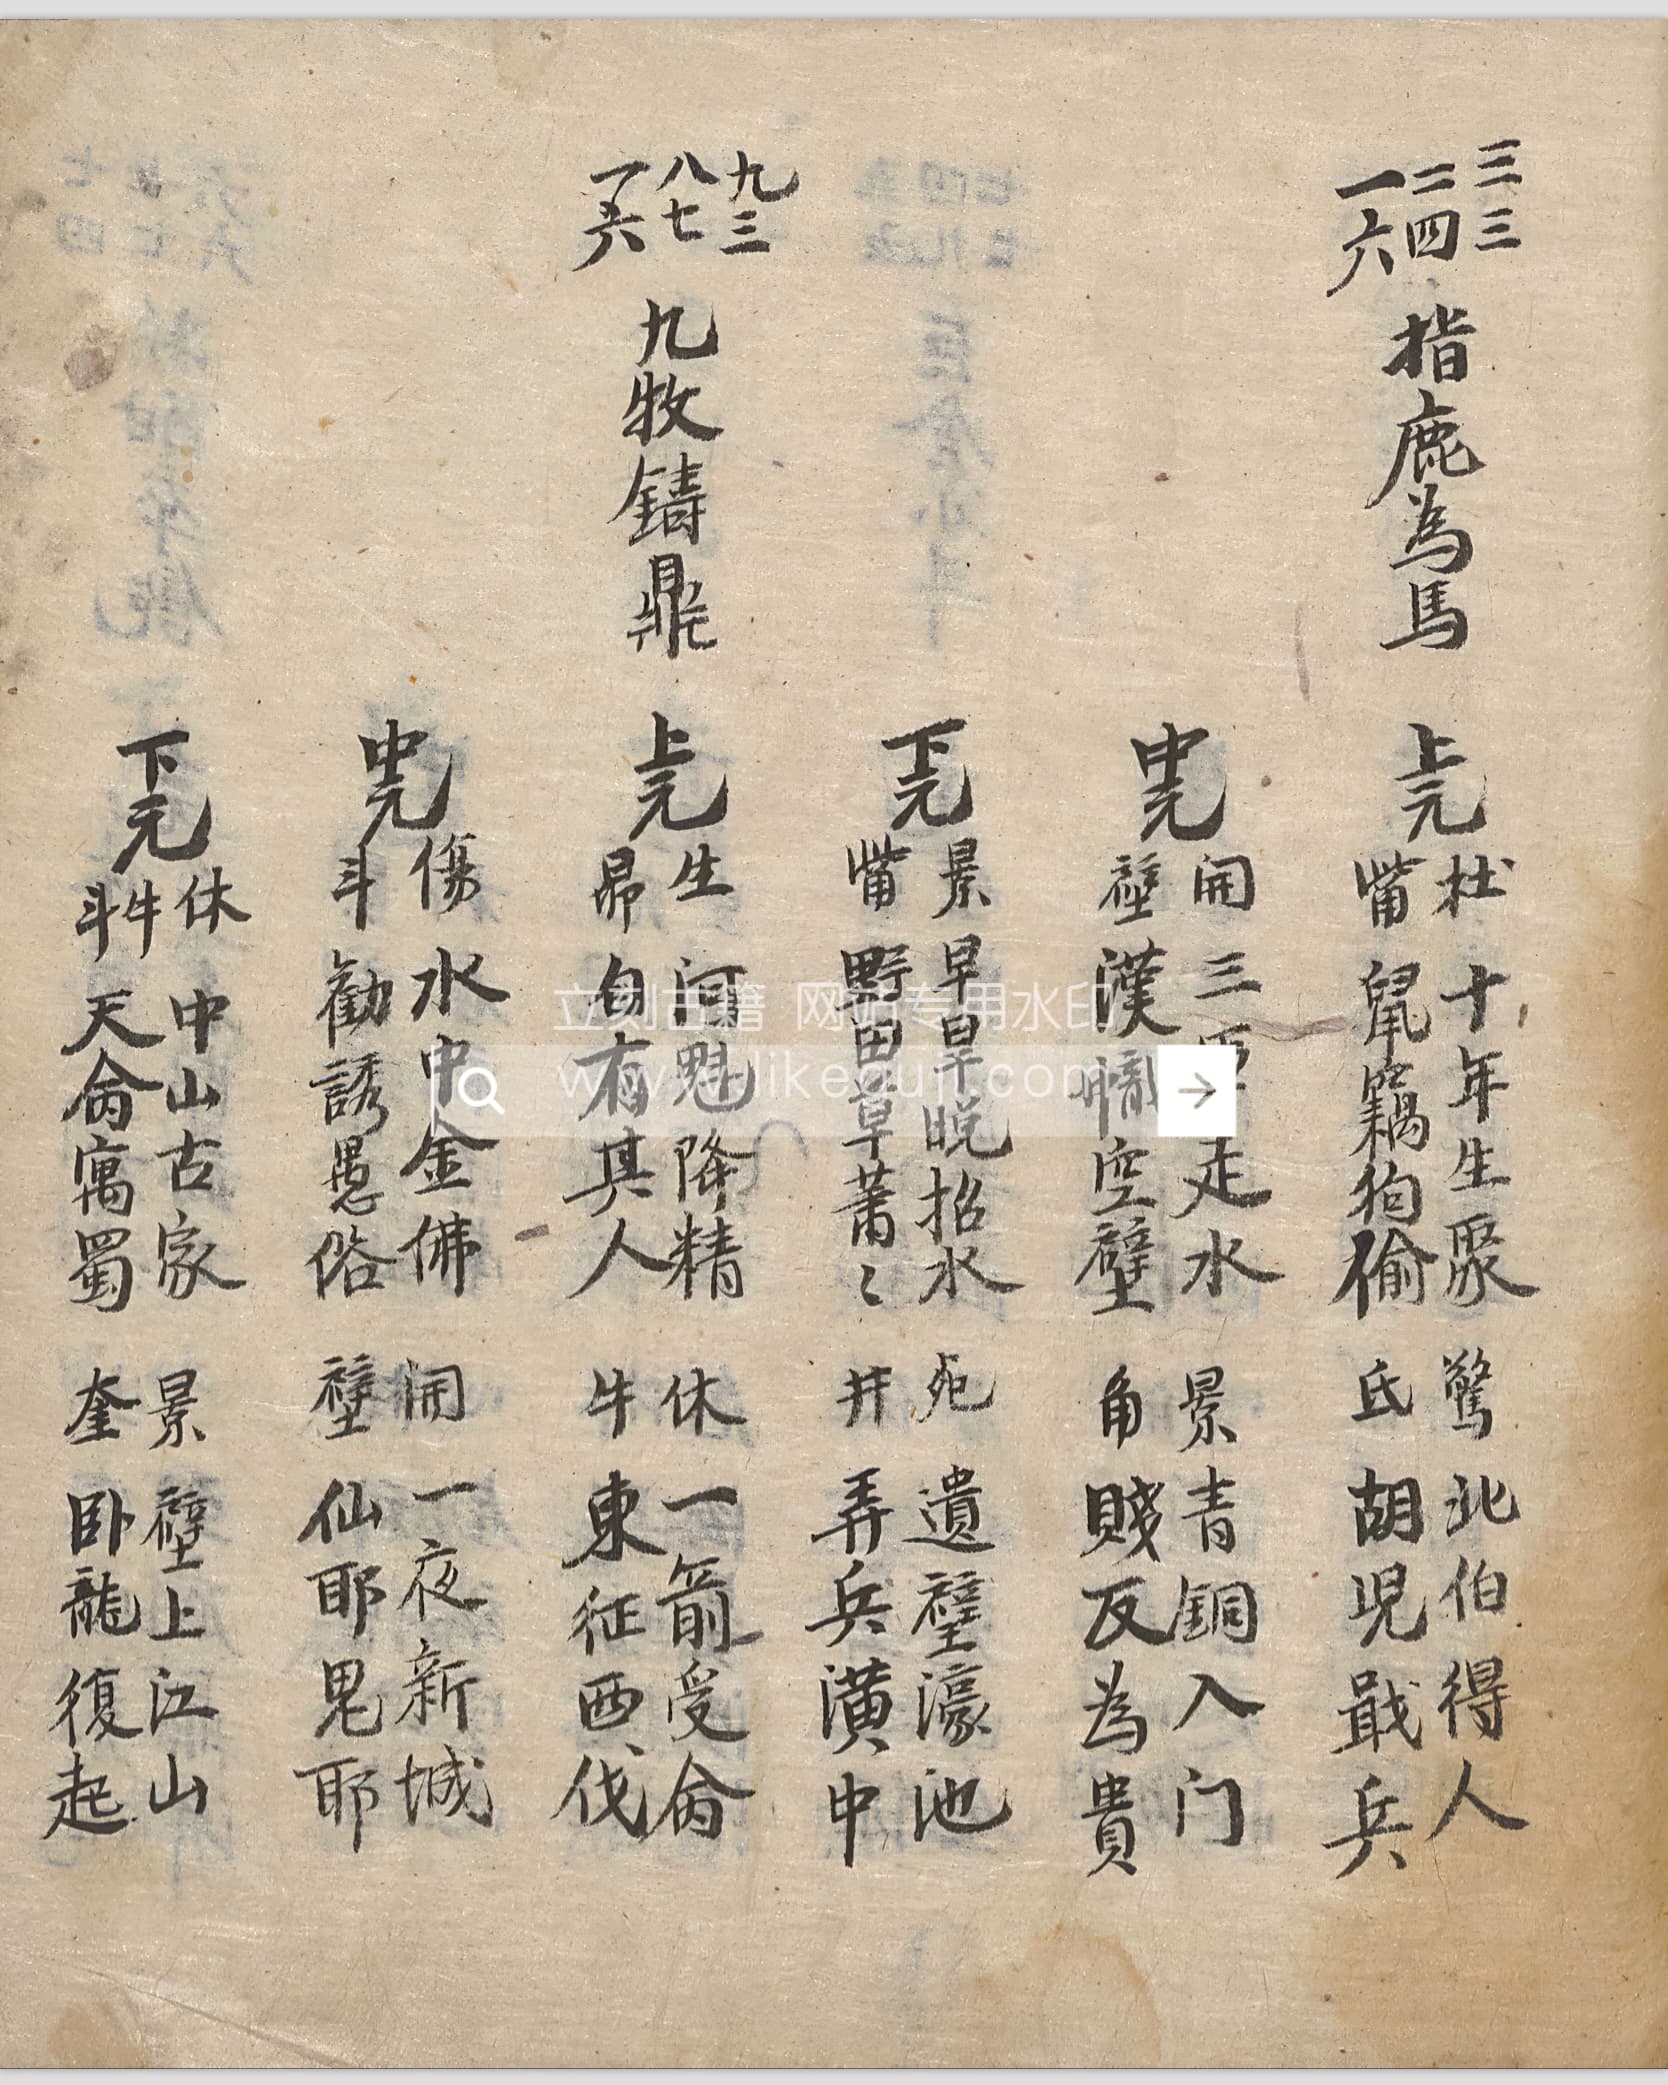 三 二 一
三 四 六
指鹿為馬
上元
杜 十年生聚 驚 北伯得人
觜 鼠竊狗偷 氐 胡児戢兵
中元
開 三 走水 景 青銅入门
壁 漢 空壁 角 賤反為貴
下元
景 早旱晚招水 死 遺壁濠池
觜 野田草萧〻 井 弄兵潢中
九 八 一
三 七 六
九牧鑄鼎
上元
生 河魁降精 休 一箭受侖
昴 自有其人 牛 東征西伐
中元
傷 水中金佛 開 一夜新城
斗 勸誘愚俗 壁 仙耶鬼耶
下元
休 中山古家 景 壁上江山
牛斗 天侖寓蜀 奎 卧龍復起
立刻古籍 网站专用水印
www.likeguji.com